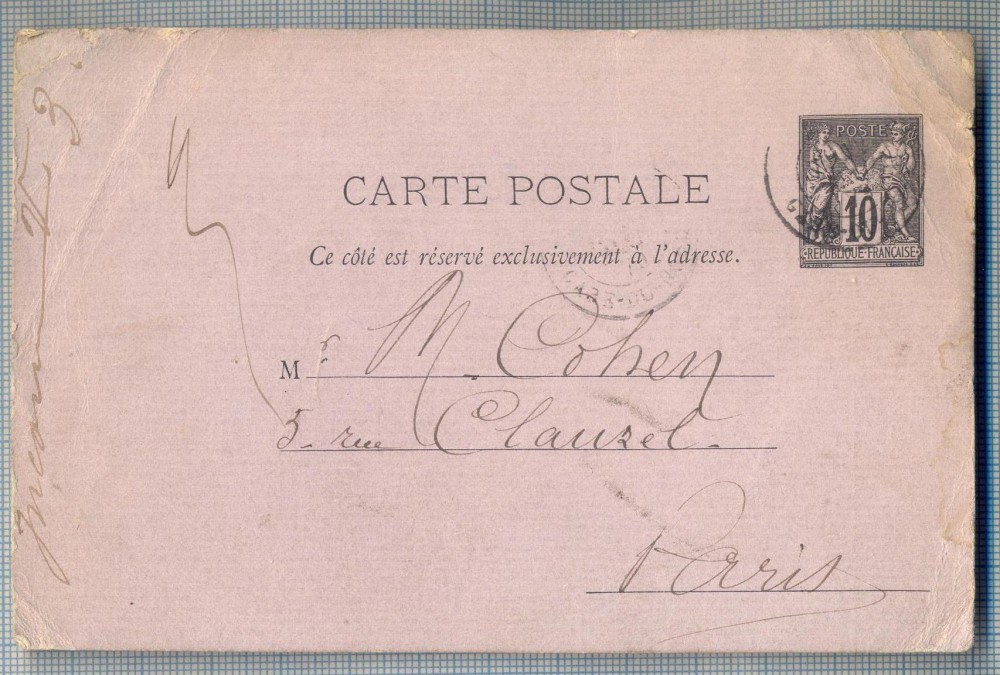 POSTE
10
REPUBLIQUE FRANÇAISE
CARTE POSTALE
Ce côté est réservé exclusivement à l'adresse.
GARE-DU-
Mr M. Cohen
5 - rue Clauzel.
Paris
Inconnu